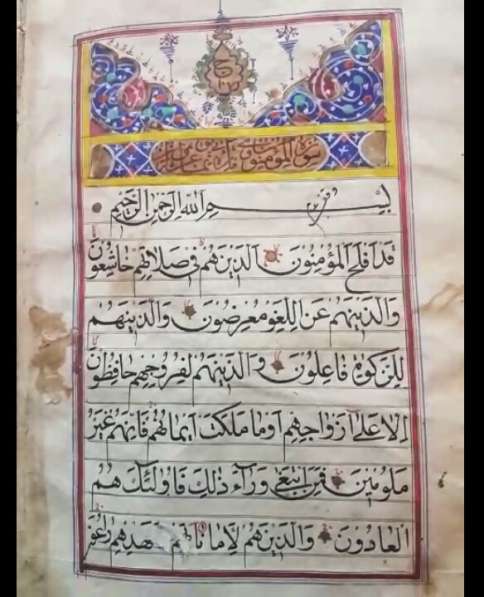 سورة المؤمنون
بِسْمِ اللهِ الرَّحْمٰنِ الرَّحِيمِ
قَدْ اَفْلَحَ الْمُؤْمِنُونَ اَلَّذِينَ هُمْ فِي صَلَاتِهِمْ خَاشِعُونَ
وَالَّذِينَ هُمْ عَنِ اللَّغْوِ مُعْرِضُونَ وَالَّذِينَ هُمْ
لِلزَّكٰوةِ فَاعِلُونَ وَالَّذِينَ هُمْ لِفُرُوجِهِمْ حَافِظُونَ
اِلَّا عَلٰى اَزْوَاجِهِمْ اَوْ مَا مَلَكَتْ اَيْمَانُهُمْ فَاِنَّهُمْ غَيْرُ
مَلُومِينَ فَمَنِ ابْتَغٰى وَرَآءَ ذٰلِكَ فَاُولٰئِكَ هُمُ
الْعَادُونَ وَالَّذِينَ هُمْ لِاَمَانَاتِهِمْ وَعَهْدِهِمْ رَاعُونَ